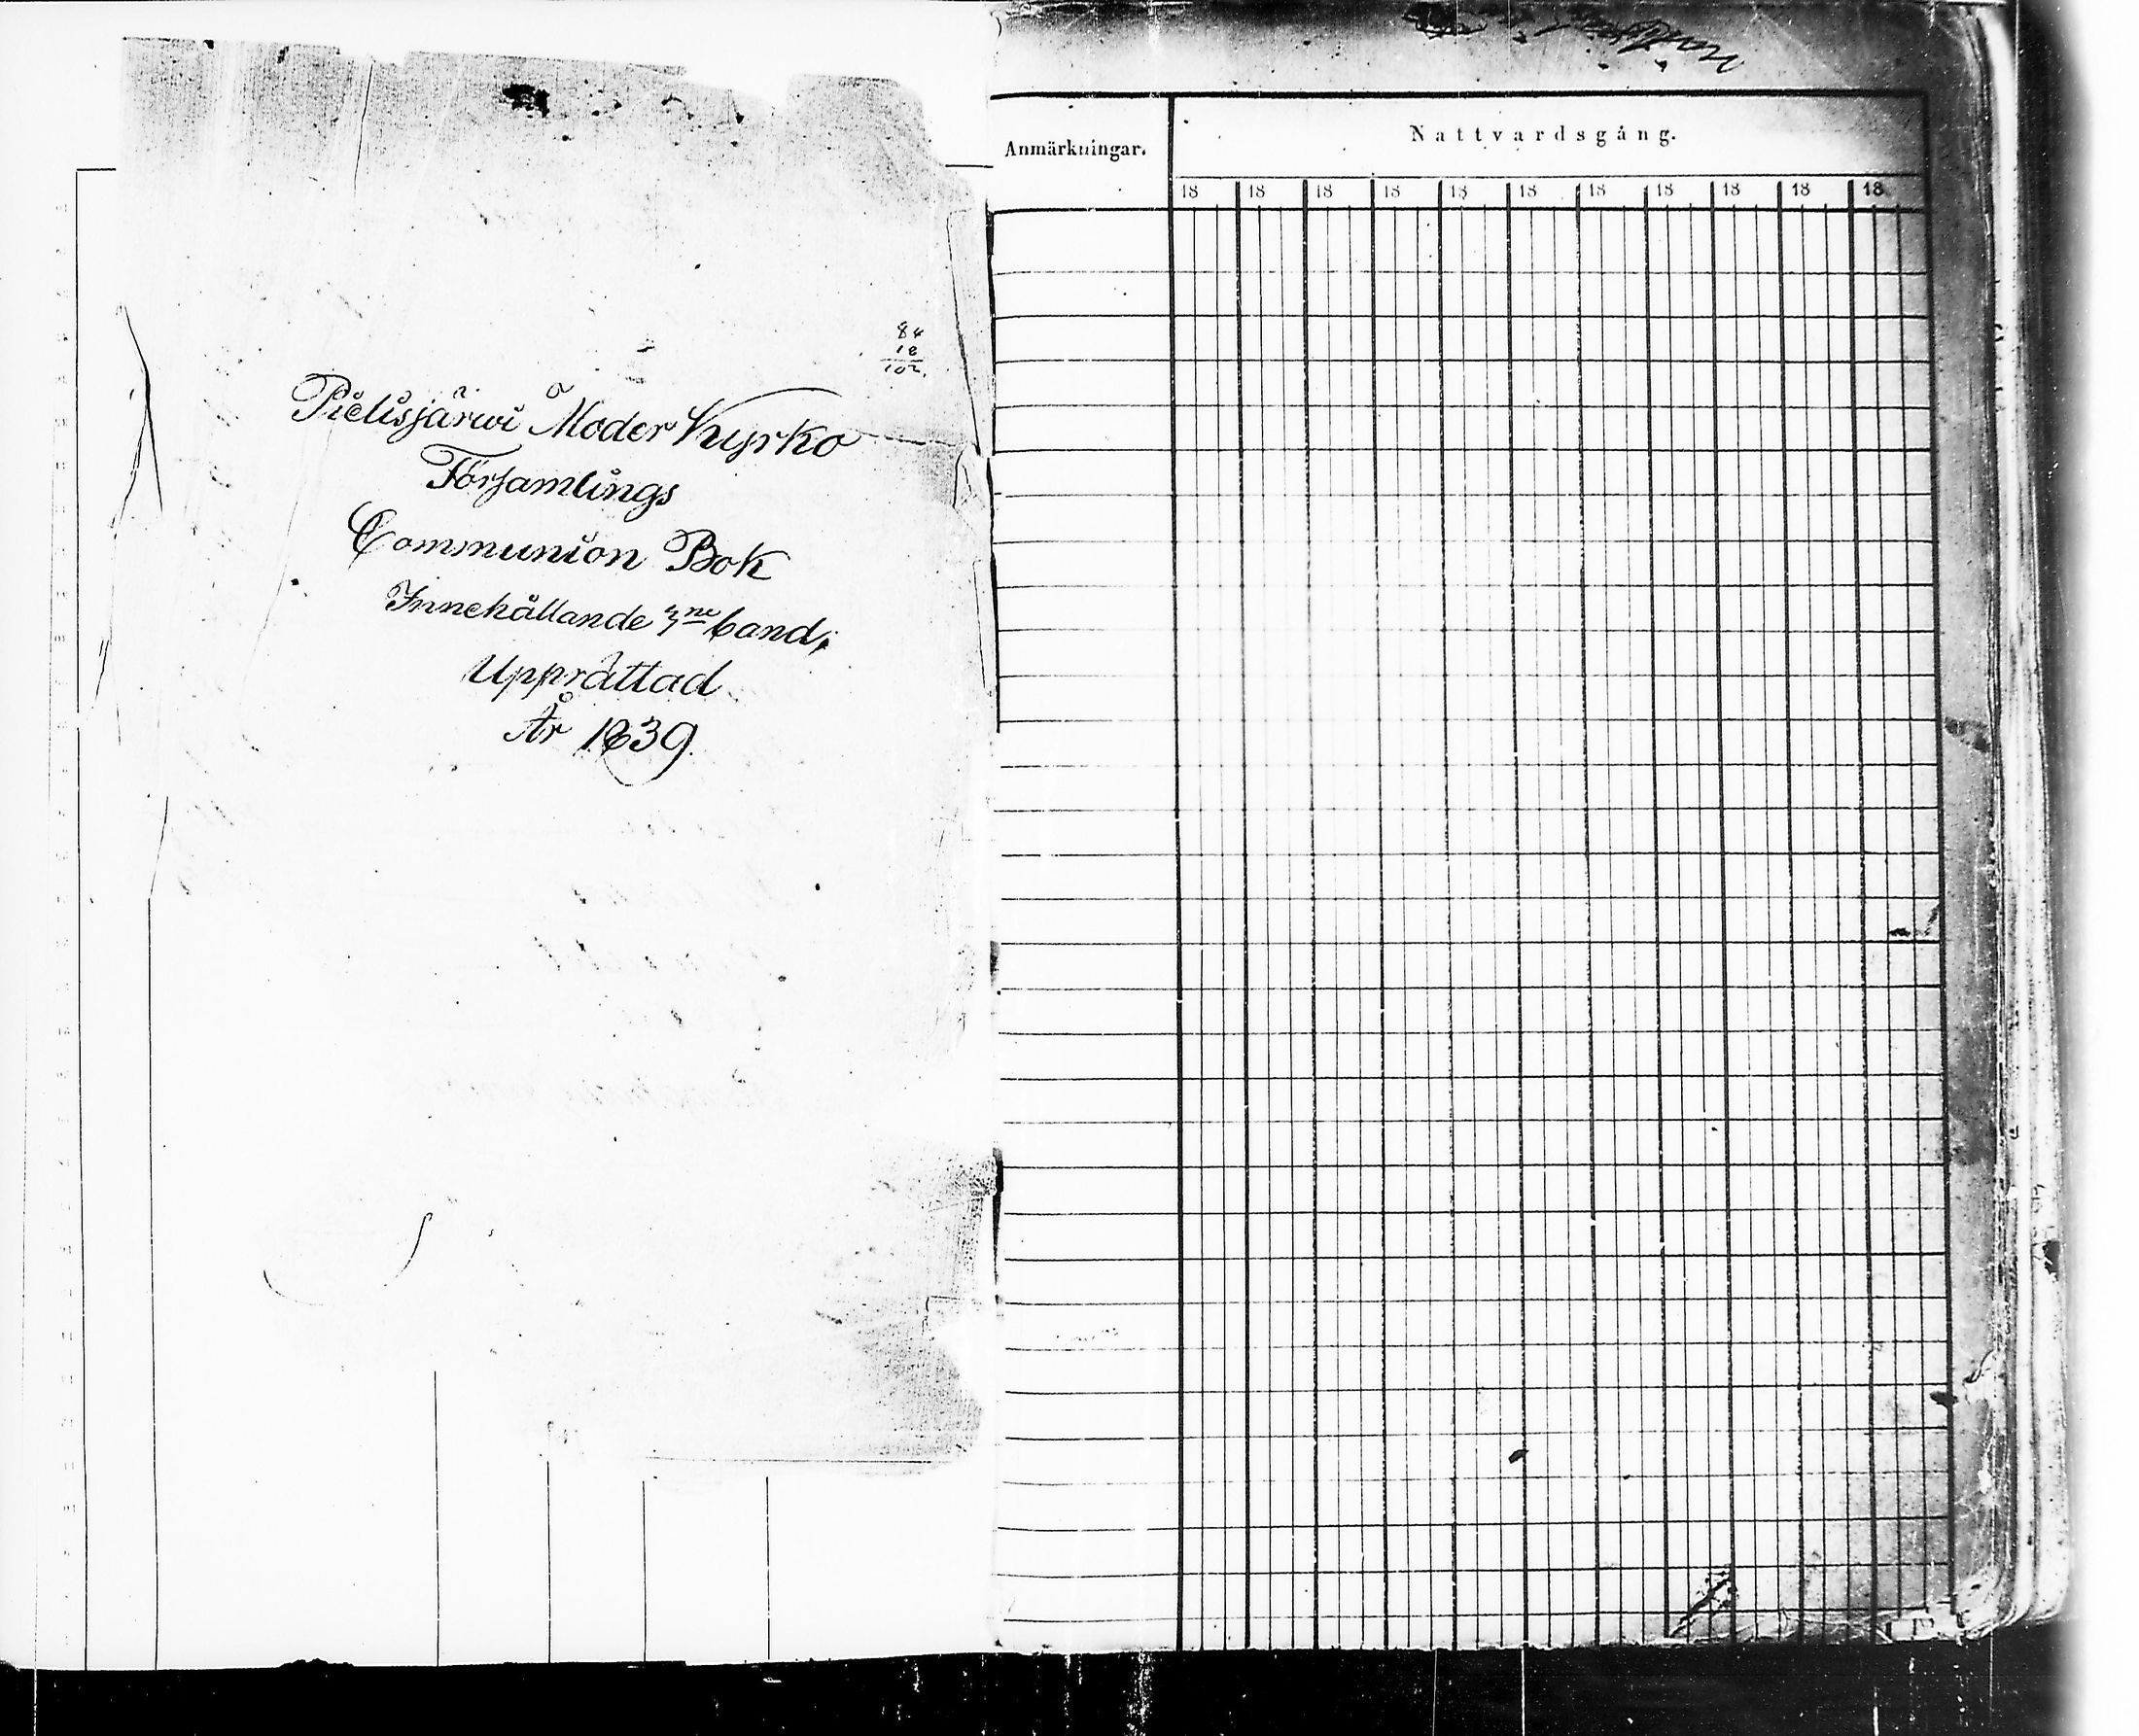 84
18
102.
Pielisjärwi Moder Kyrko
Församlings
Communion Bok
Innehållande 3ne band;
Upprättad
År 1839.
Anmärkningar.
Nattvardsgång.
18 18 18 18 18 18 18 18 18 18 18